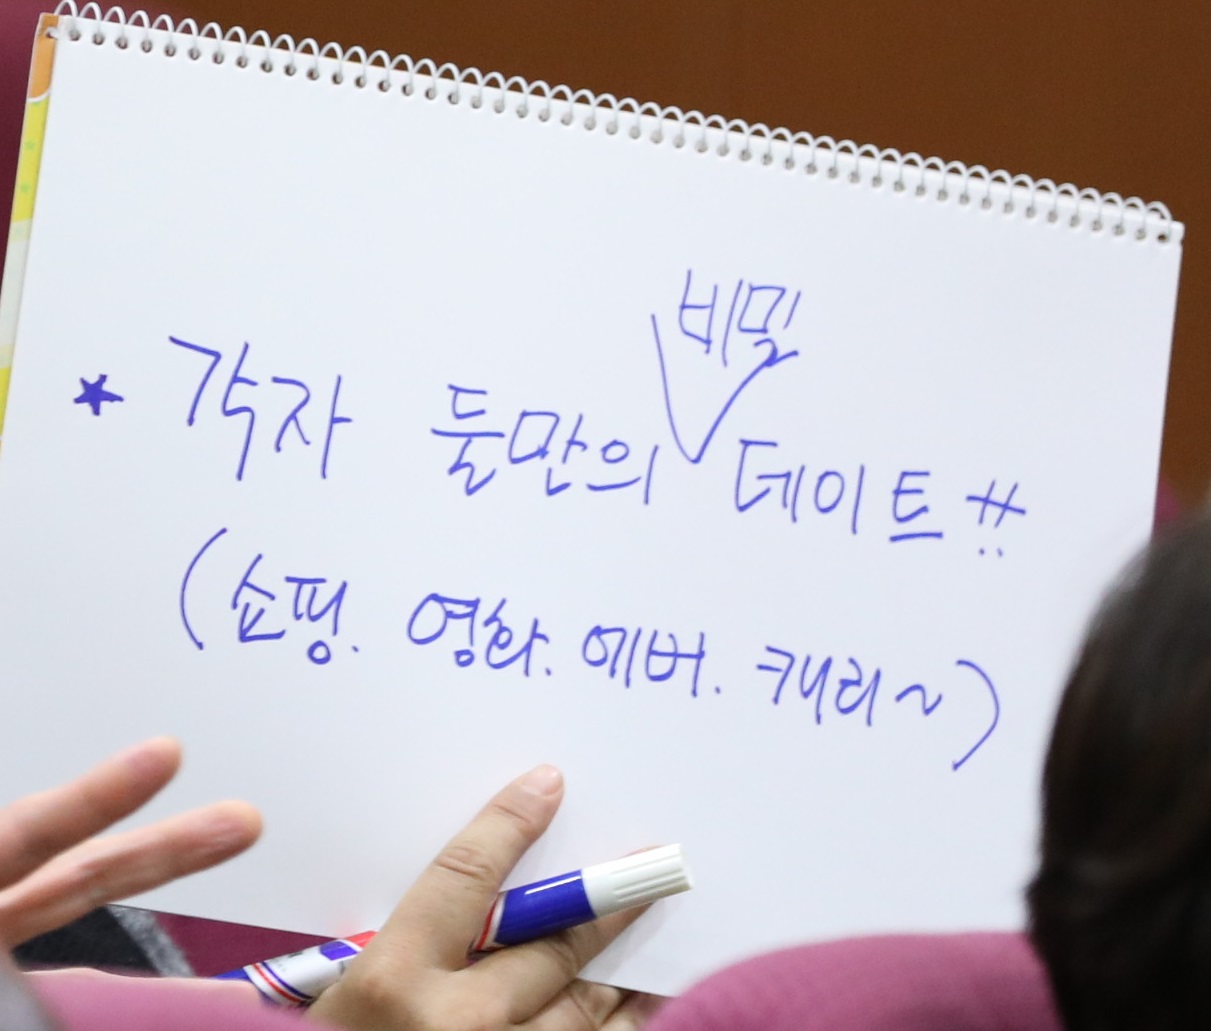 비밀
★ 각자 둘만의 데이트!!
(쇼핑. 영화. 에버. 캐리~)